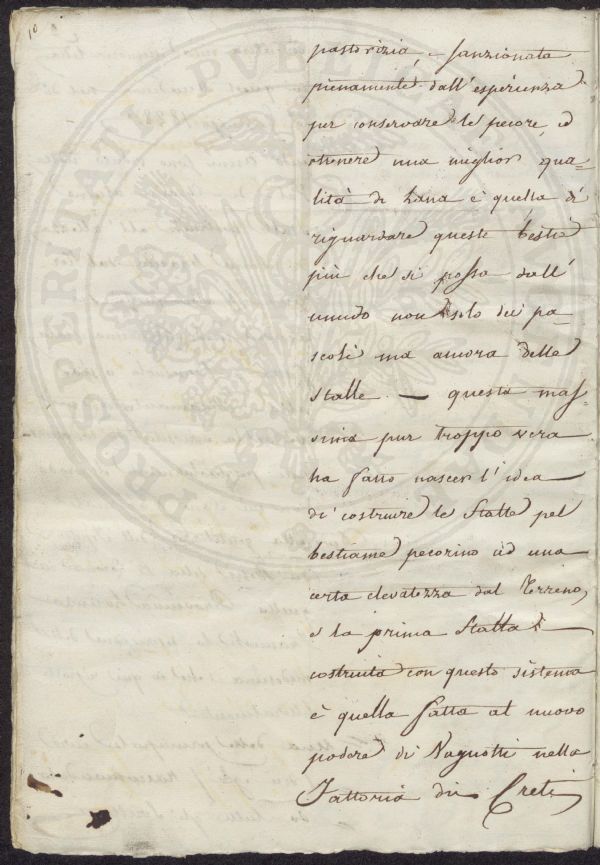 10
pastorizia, e sanzionata
pienamente dall'esperienza
per conservare le pecore, ed
ottenere una miglior qua=
lità di Lana è quella di
riguardare queste bestie
più che si possa dall'
umido non solo dei pa=
scoli ma ancora delle
Stalle. — questa mas=
sima pur troppo vera
ha fatto nascer l'idea
di costruire le Stalle pel
bestiame pecorino ad una
certa elevatezza dal Terreno,
e la prima Stalla
costruita con questo sistema
è quella fatta al nuovo
podere di nella
Fattoria di Creti
PROSPERITATI PUBLICAE